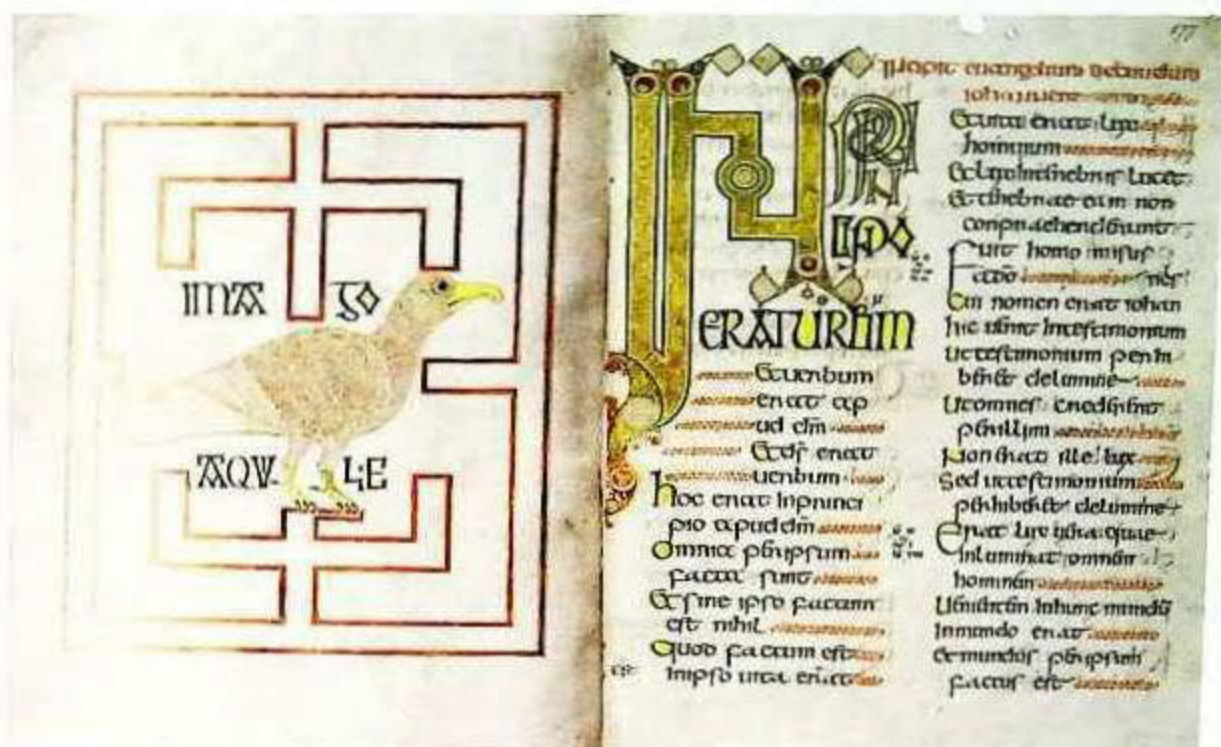 IMA GO
AQV LE
177
Incipit euangelium secundum
iohannem
IN PRIN
CIPIO
ERAT UERBUM
Et uerbum
erat ap
ud dm̄
Et ds̄ erat
uerbum
hoc erat In princi
pio apud dm̄
omnia per ipsum
facta sunt
Et sine ipso factum
est nihil
quod factum est
In ipso uita erat
Et uita erat lux
hominum
Et lux in tenebris lucet
Et tenebrae eam non
conpraehenderunt
Fuit homo misus
a dō nes
Cui nomen erat iohan
hic uenit In testimonium
ut testimonium perhi
beret de lumine
Ut omnes crederent
per illum
Non erat ille lux
sed ut testimonium
perhiberet de lumine
Erat lux uera quae
inluminat omnem
hominem
Uenientem In hunc mundū
In mundo erat
et mundus per ipsum
factus est